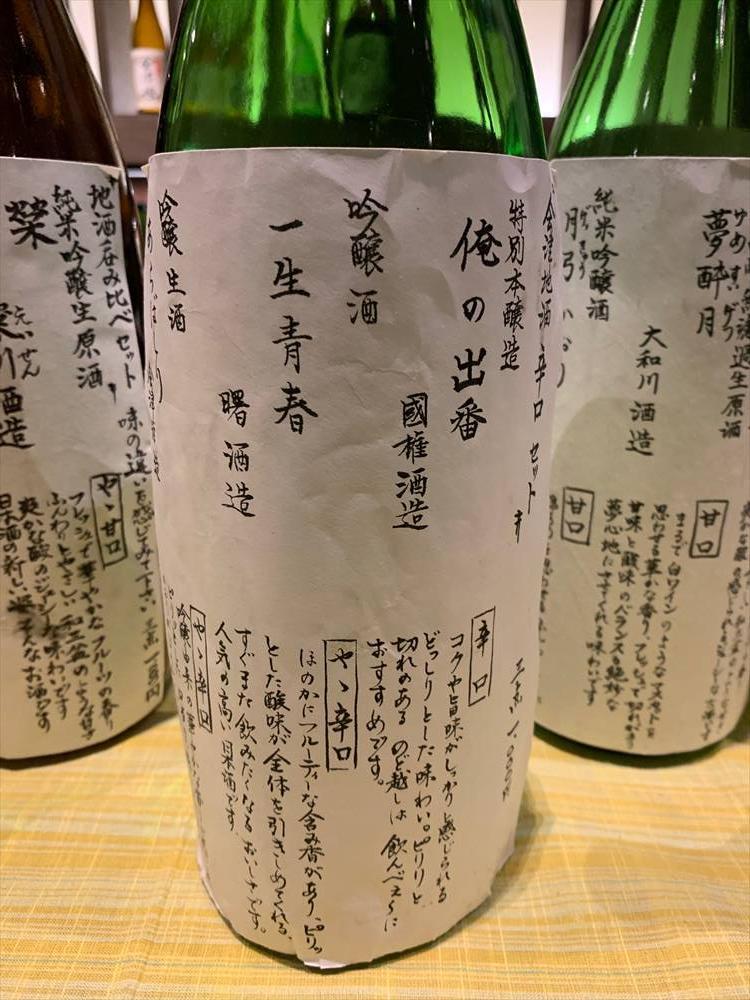 地酒呑み比べセット 味の違いを感じてみて下さい
純米吟醸生原酒
榮川酒造
えいせん
やゝ甘口
フレッシュで華やかなフルーツの香り
ふんわりとやさしい和三盆のような甘さ
爽かな酸のジューシーな味わいです
日本酒の新しい
そんなお酒です
会津地酒 辛口セット
特別本醸造
俺の出番
國権酒造
辛口
コクや旨味がしっかりと感じられる
どっしりとした味わい。ピリリと
切れのある のど越しは 飲んべえ〜に
おすすめです。
吟醸酒
一生青春
曙酒造
やゝ辛口
ほのかにフルーティーな含み香があり、ピリッ
とした酸味が全体を引きしめてくれる、
すぐまた飲みたくなるおいしさです。
人気の高い日本酒です
吟醸生酒
あらばしり
やゝ辛口
吟醸由来の華やかな香り
生原酒
夢酔月
大和川酒造
甘口
純米吟醸酒
月弓かおり
甘口
まるで白ワインのようなマスカットを
思わせる華かな香り、フレッシュで切れがあり
甘味と酸味のバランスも絶妙な
夢心地にさせてくれる味わいです